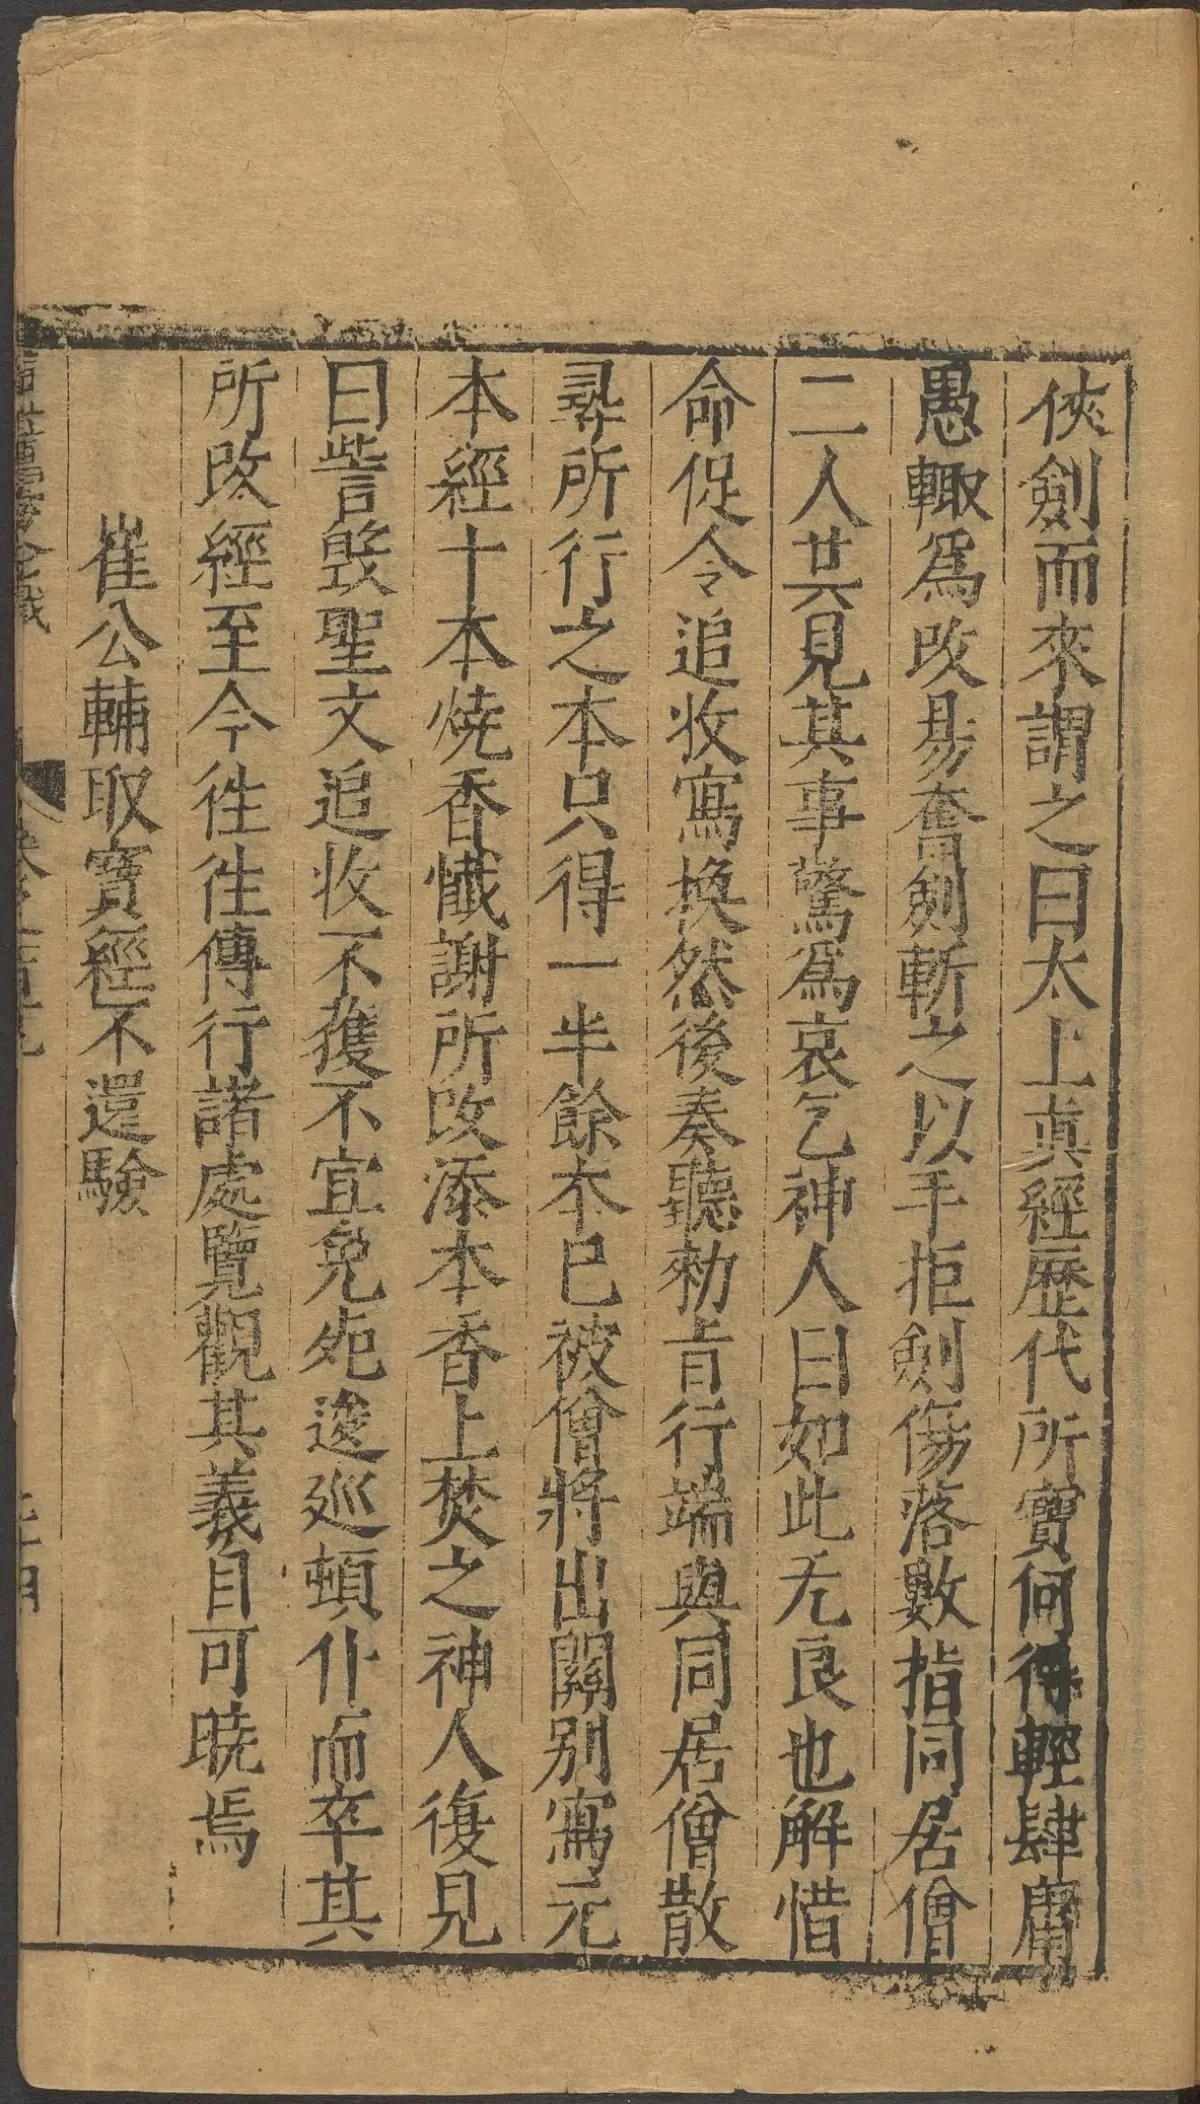 俠劍而來謂之曰太上真經歷代所寶何得輕肆庸
愚輙爲改易奮劍斬之以手拒劍傷落數指同居僧
二人共見其事驚爲哀乞神人曰如此无良也解惜
命促令追收寫換然後奏聽勑旨行端與同居僧散
尋所行之本只得一半餘本已被僧將出關別寫元
本經十本燒香懺謝所改添本香上焚之神人復見
曰訾毀聖文追收不獲不宜免死逡巡頓仆而卒其
所改經至今徃徃傳行諸處覽觀其義目可曉焉
崔公輔取寶經不還驗